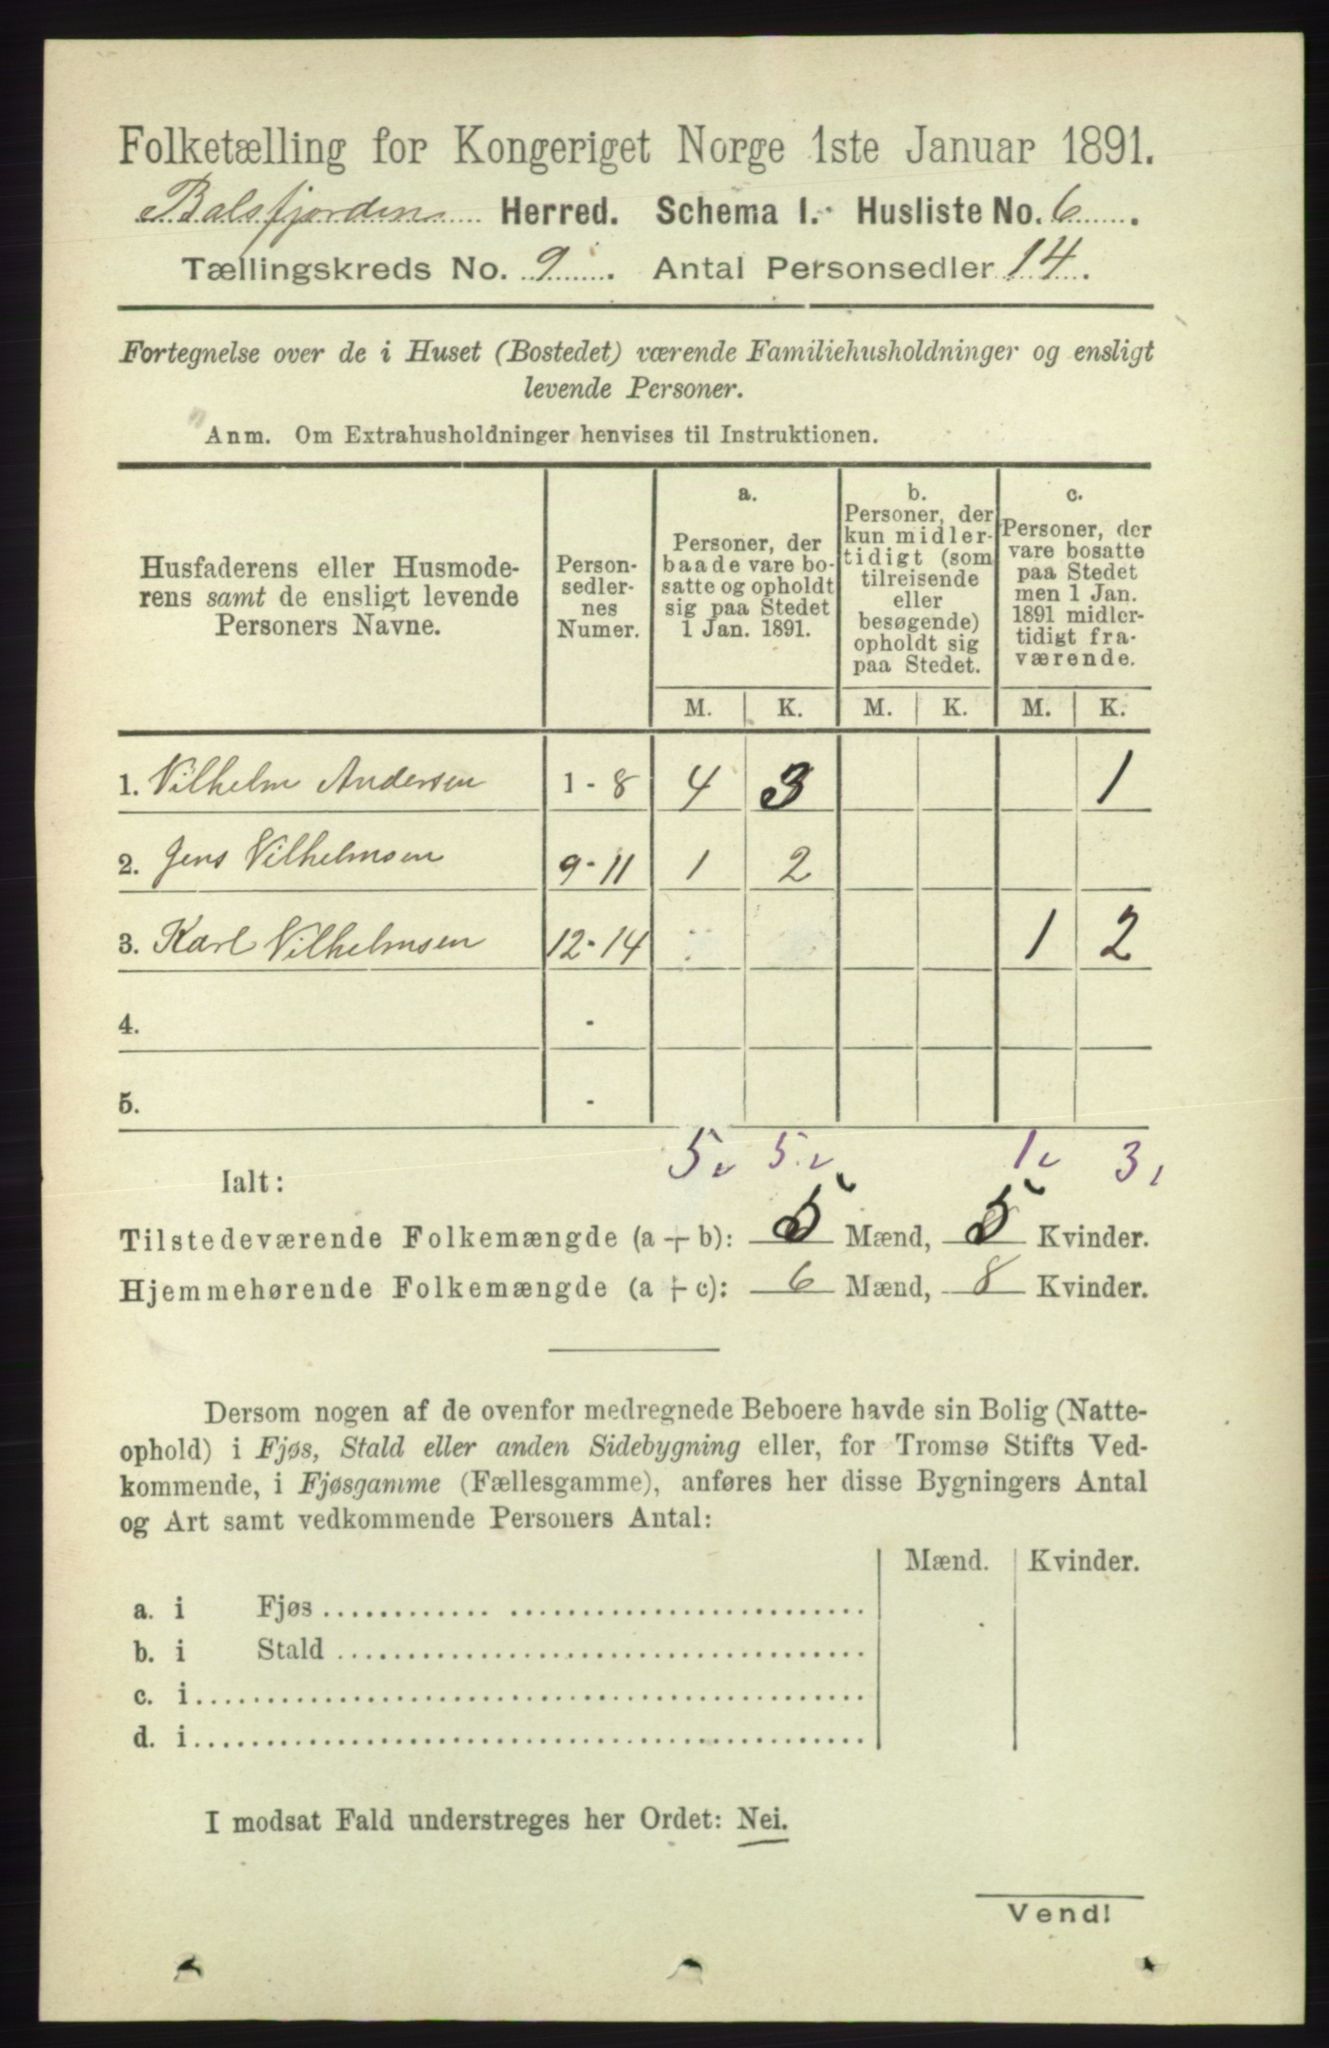 Folketælling for Kongeriget Norge 1ste Januar 1891.
Balsfjorden Herred. Schema I. Husliste No. 6.
Tællingskreds No. 9. Antal Personsedler 14.
Fortegnelse over de i Huset (Bostedet) værende Familiehusholdninger og ensligt
levende Personer.
Anm. Om Extrahusholdninger henvises til Instruktionen.
Husfaderens eller Husmode-
rens samt de ensligt levende
Personers Navne.
Person-
sedler-
nes
Numer.
a.
Personer, der
baade vare bo-
satte og opholdt
sig paa Stedet
1 Jan. 1891.
b.
Personer, der
kun midler-
tidigt (som
tilreisende
eller
besøgende)
opholdt sig
paa Stedet.
c.
Personer, der
vare bosatte
paa Stedet
men 1 Jan.
1891 midler-
tidigt fra-
værende.
M. K. M. K. M. K.
1. Vilhelm Andersen 1 - 8 4 3 1
2. Jens Vilhelmsen 9 - 11 1 2
3. Karl Vilhelmsen 12 - 14 1 2
4. -
5. -
5 5 1 3
Ialt:
Tilstedeværende Folkemængde (a + b): 5 Mænd, 5 Kvinder.
Hjemmehørende Folkemængde (a + c): 6 Mænd, 8 Kvinder.
Dersom nogen af de ovenfor medregnede Beboere havde sin Bolig (Natte-
ophold) i Fjøs, Stald eller anden Sidebygning eller, for Tromsø Stifts Ved-
kommende, i Fjøsgamme (Fællesgamme), anføres her disse Bygningers Antal
og Art samt vedkommende Personers Antal:
Mænd. Kvinder.
a. i Fjøs
b. i Stald
c. i
d. i
I modsat Fald understreges her Ordet: Nei.
Vend!